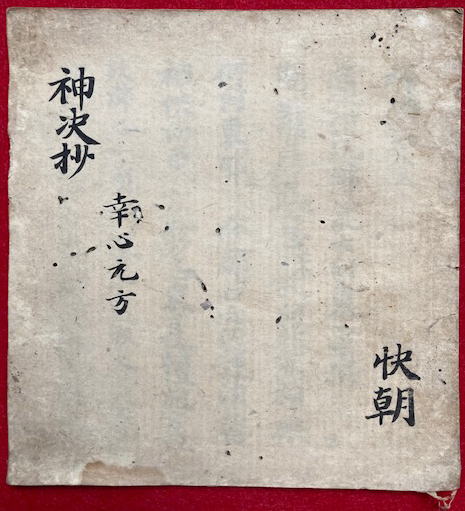 神决抄
幸心元方
快朝